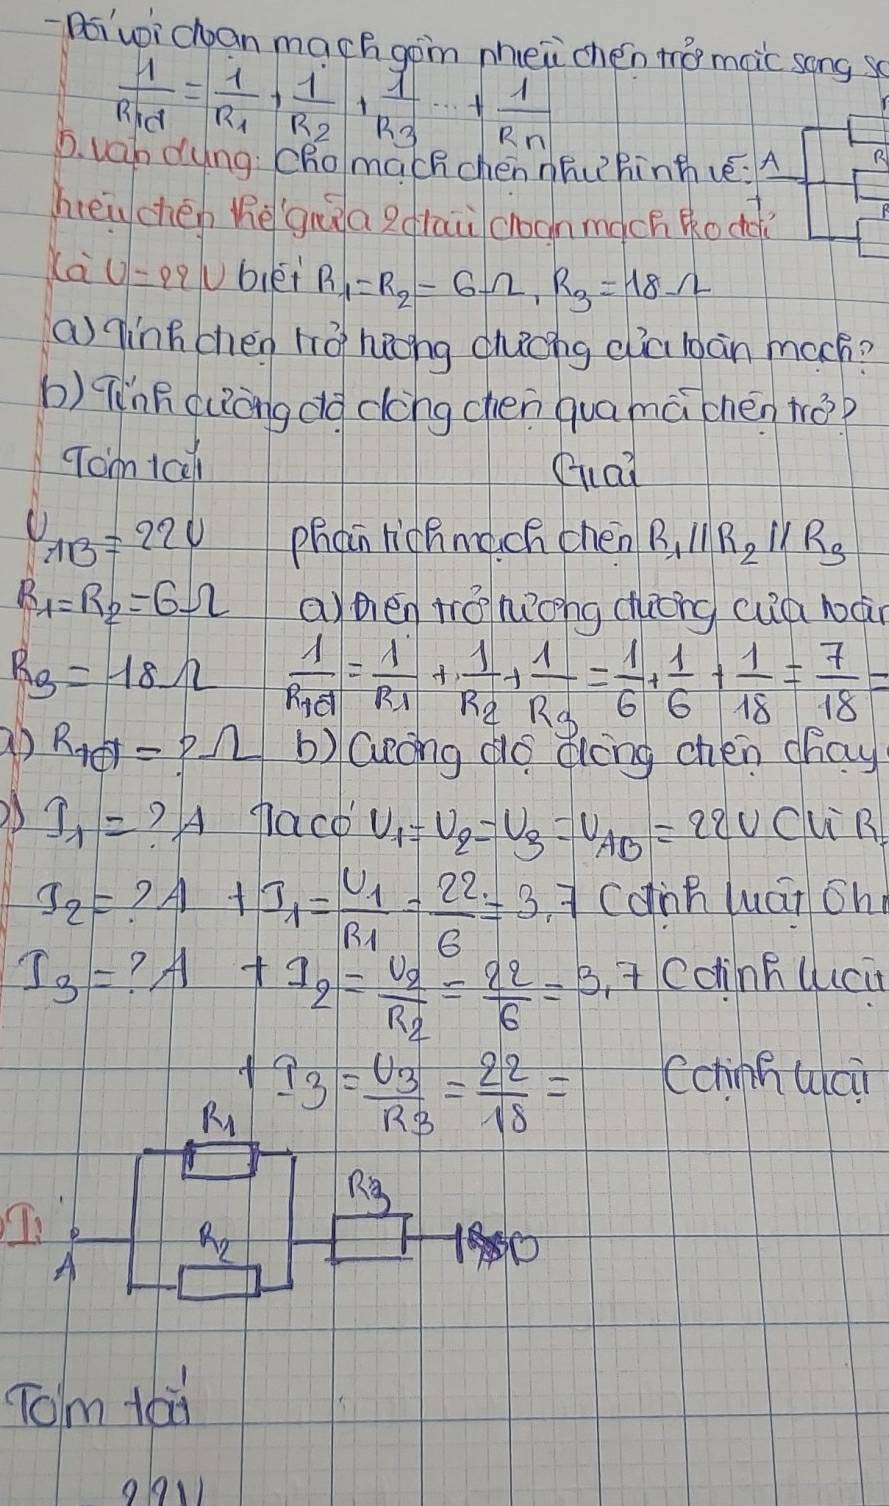 - Đối với đoạn mạch gồm nhiều điện trở mắc song so
1/Rtđ = 1/R1 + 1/R2 + 1/R3 ... + 1/Rn
b. Vận dụng: Cho mạch điện như hình vẽ: A
+
R
hiệu điện thế giữa 2 đầu đoạn mạch
là U = 22V biết R1 = R2 = 6Ω, R3 = 18Ω
a) Tính điện trở tương đương của toàn mạch?
b) Tính cường độ dòng điện qua mỗi điện trở?
Tóm tắt
Giải
UAB = 22V phân tích mạch điện R1 // R2 // R3
R1 = R2 = 6Ω a) Điện trở tương đương của toàn
R3 = 18Ω 1/Rtđ = 1/R1 + 1/R2 + 1/R3 = 1/6 + 1/6 + 1/18 = 7/18 =
a) Rtđ = ? Ω b) Cường độ dòng điện chạy
b) I1 = ? A Ta có U1 = U2 = U3 = UAB = 22V
I2 = ? A + I1 = U1/R1 = 22/6 = 3,7 (định luật Ôh
I3 = ? A + I2 = U2/R2 = 22/6 = 3,7 (định luật
+ I3 = U3/R3 = 22/18 = (định luật
R1
R3
R2
A
Tóm tắt
22V